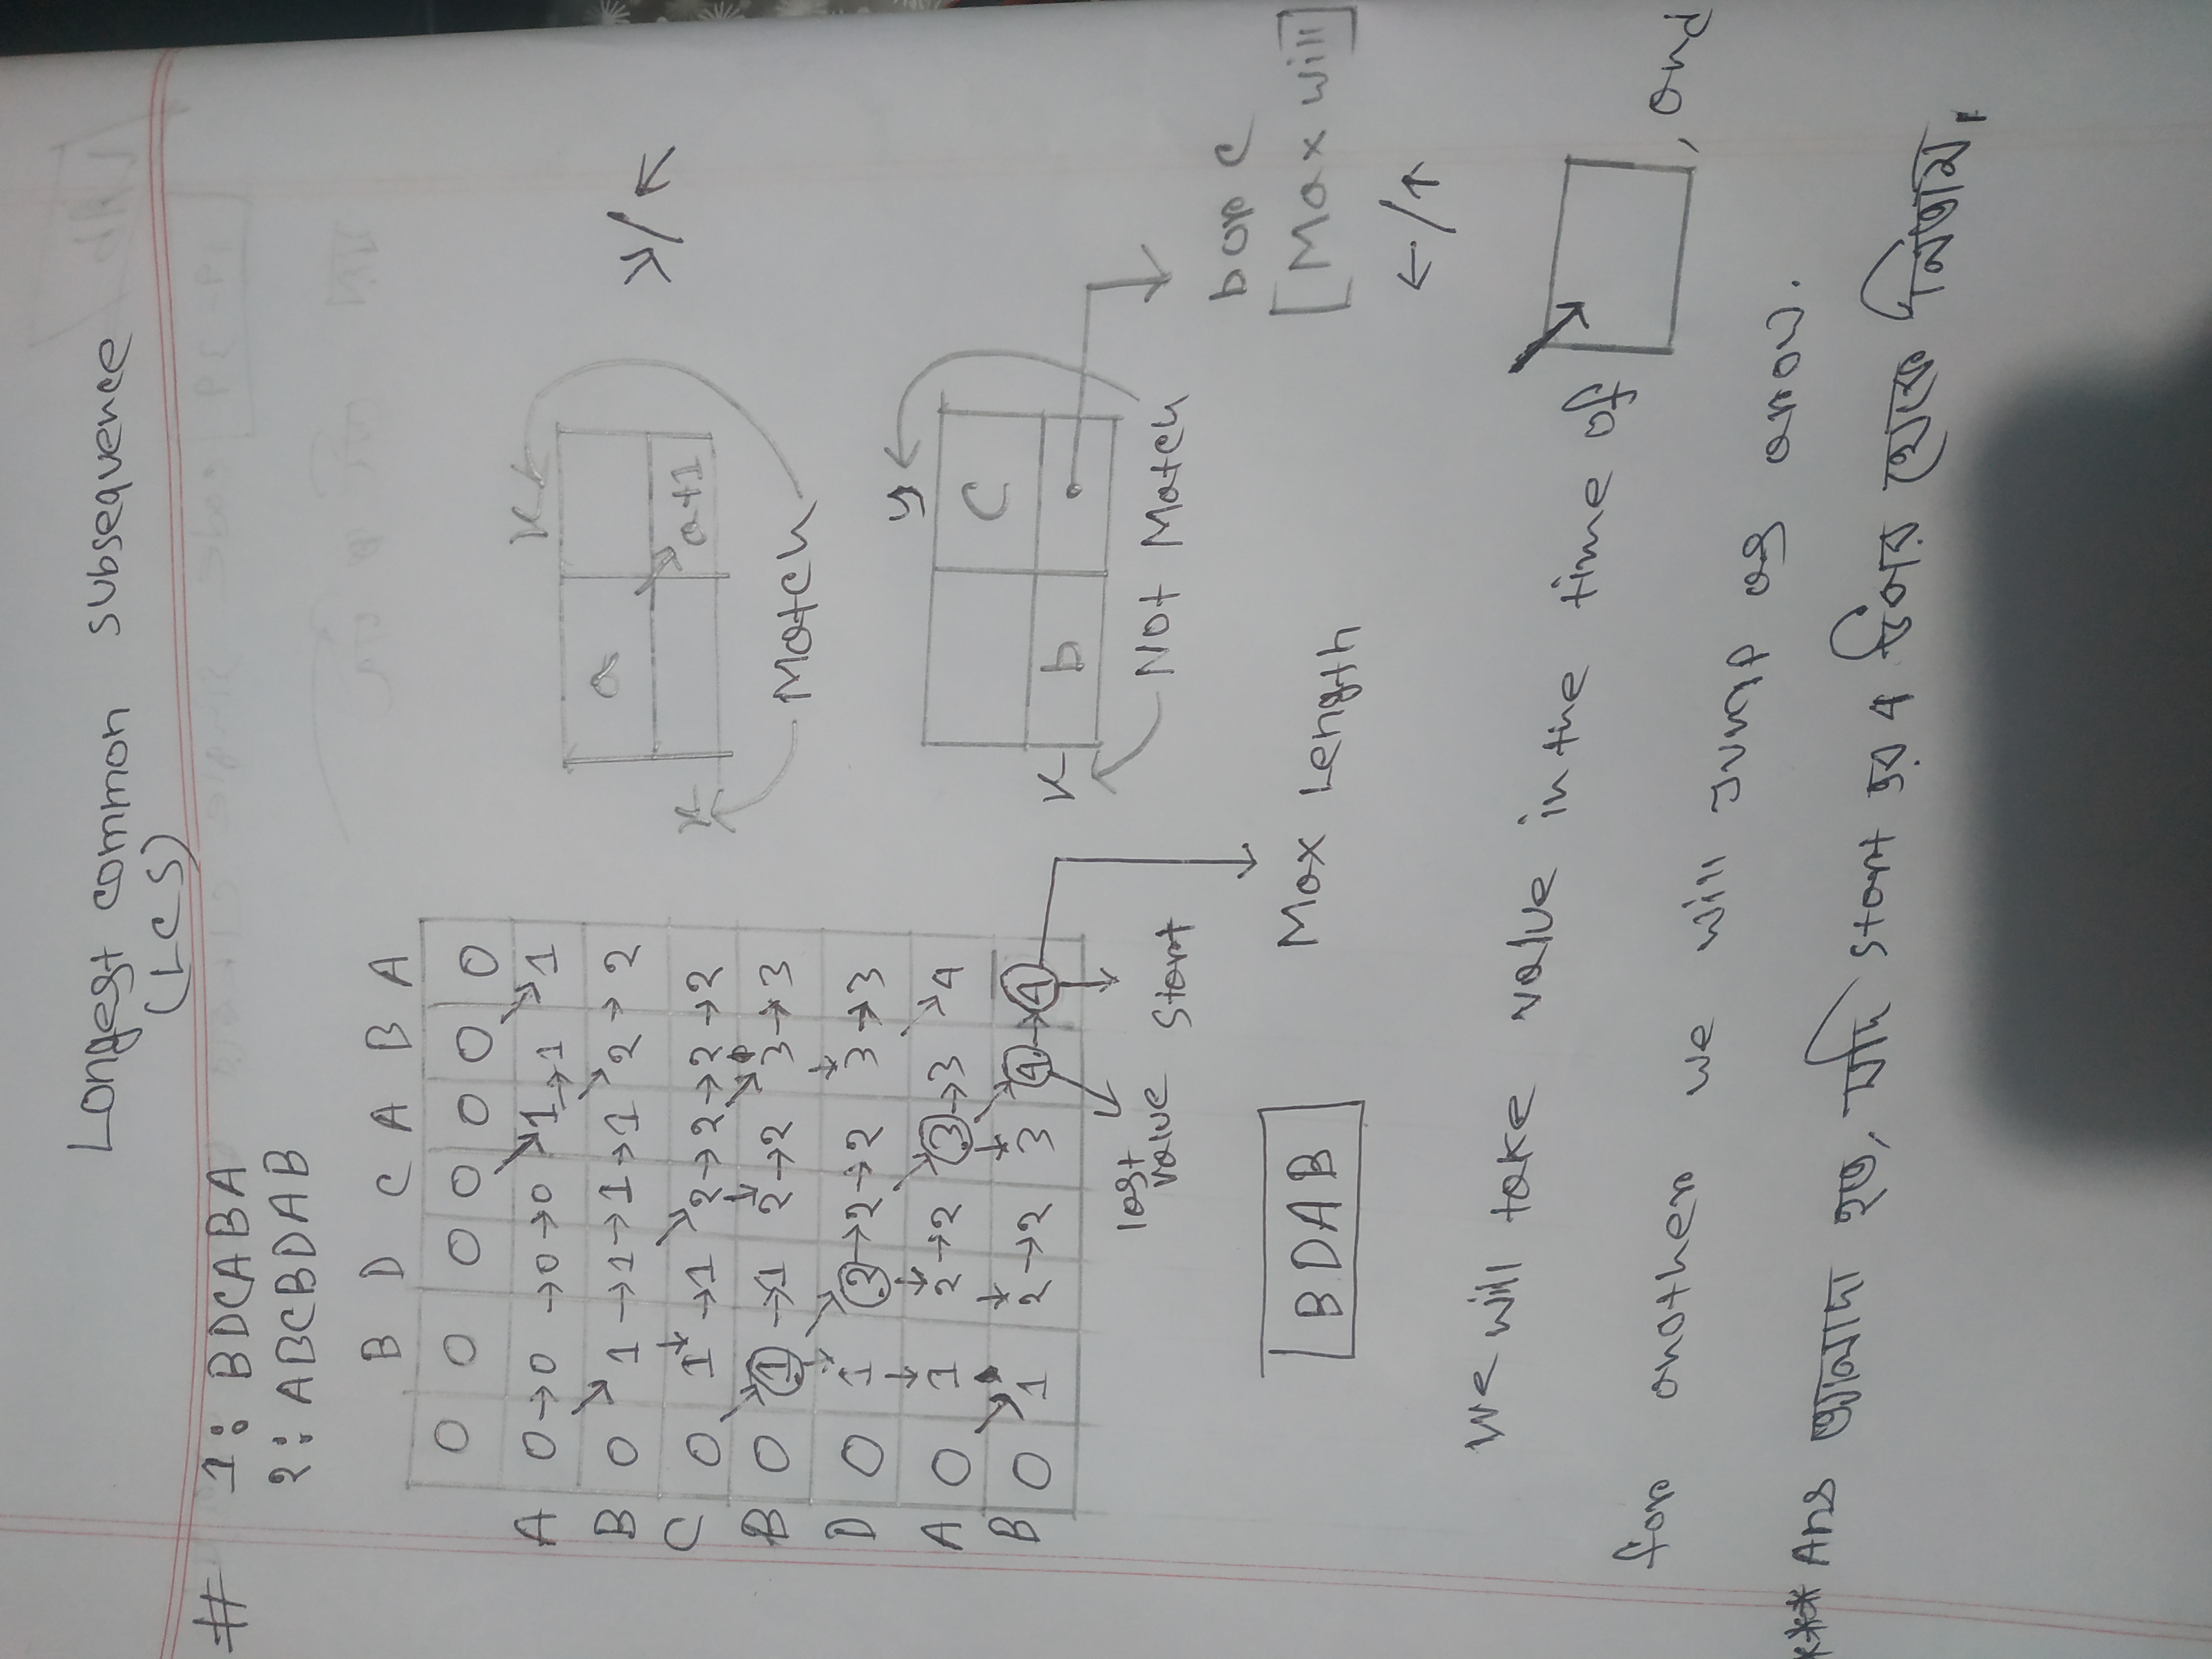 Longest common subsequence
(LCS)
# 1: BDCABA
2: ABCBDAB
B D C A B A
0 0 0 0 0 0 0
A 0 → 0 → 0 → 0 1 → 1 1
B 0 1 → 1 → 1 → 1 2 → 2
C 0 1 → 1 2 → 2 → 2 → 2
B 0 1 → 1 2 → 2 3 → 3
D 0 1 2 → 2 → 2 3 → 3
A 0 1 2 → 2 3 → 3 4
B 0 1 2 → 2 3 4 → 4
last value
Start
Max Length
BDAB
x
a
x a+1
Match
↘/↖
y
c
x b
Not Match
b or c
[Max will]
←/↑
We will take value in the time of , and
for another we will Jump as arrow.
*** Ans আলাদা হত, যদি start এর 4 উপর থেকে নিতাম।